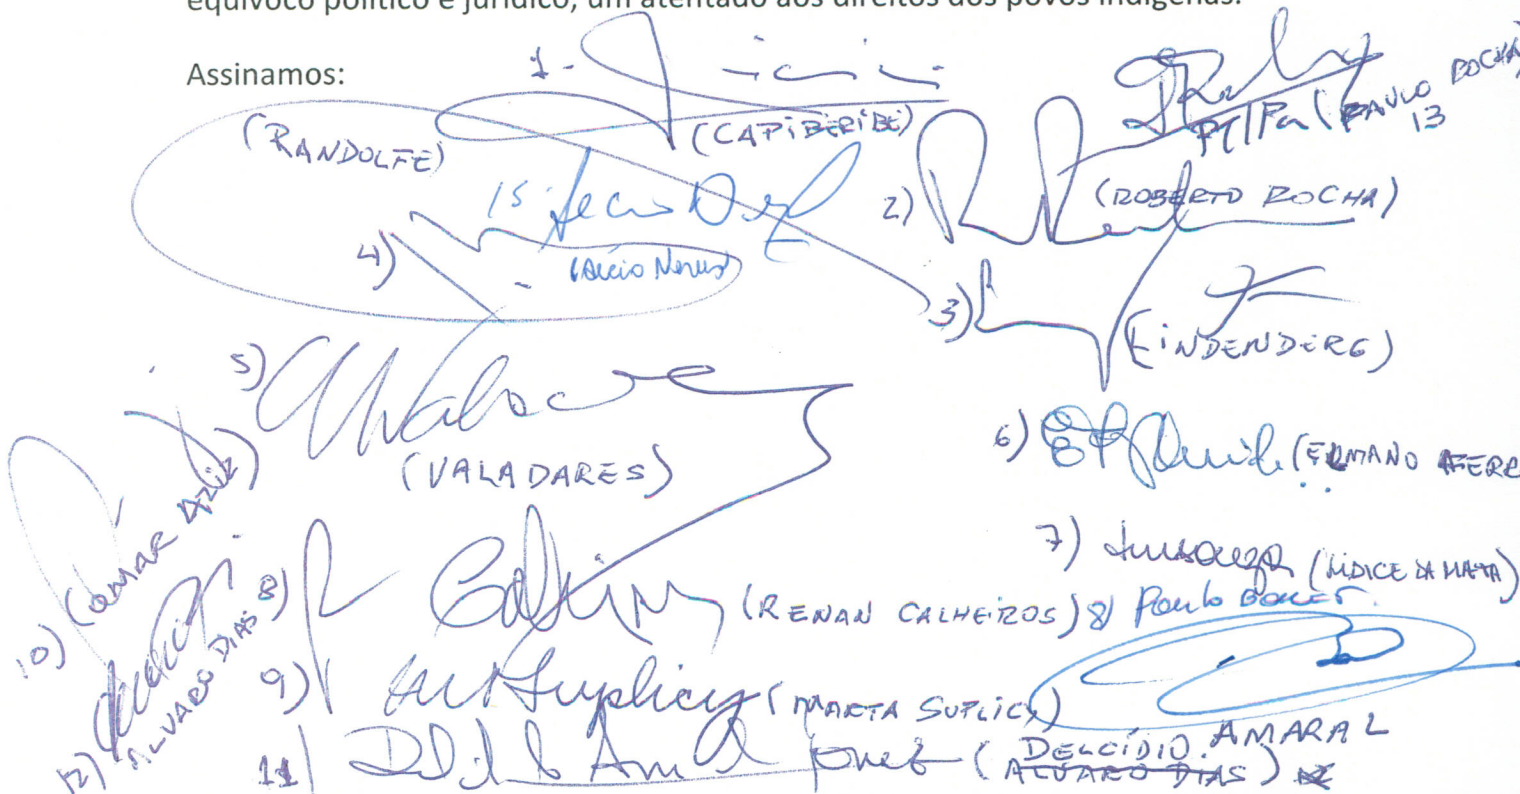 equívoco político e jurídico, um atentado aos direitos dos povos indígenas.
Assinamos:
1-
(CAPIBERIBE)
PT/Pa (PAULO ROCHA)
13
(RANDOLFE)
2)
(ROBERTO ROCHA)
15
(Aécio Neves)
4)
3)
(LINDENDERG)
5)
(VALADARES)
6)
(ERMANO FERR
7)
(LIDICE DA MATA)
10) (OMAR AZIZ)
8)
(RENAN CALHEIROS)
8) Paulo Bauer
12)
ALVARO DIAS
9) Suplicy (MARTA SUPLICY)
11)
(DELCÍDIO. AMARAL
ALVARO DIAS)